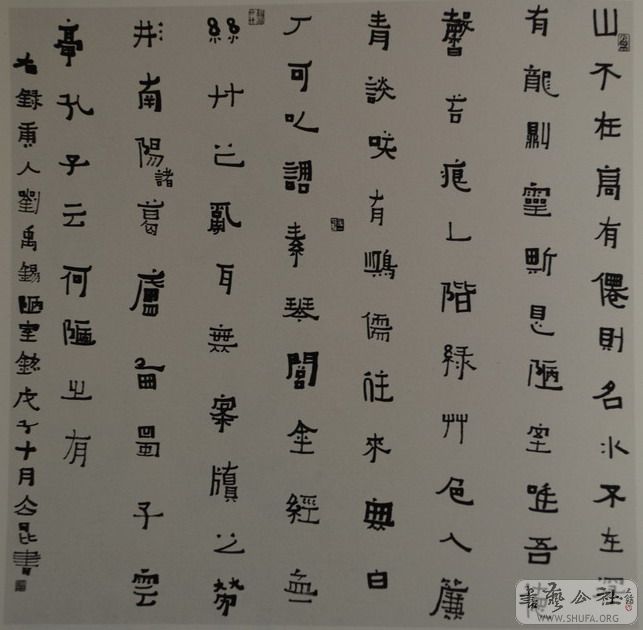 山不在高有僊則名水不在深
有龍則靈斯是陋室唯吾德
馨苔痕上階綠艸色入簾
青談咲有鴻儒往來無白
丁可以調素琴閱金經無
絲竹之亂耳無案牘之勞
形南陽諸葛廬西蜀子雲
亭孔子云何陋之有
右錄唐人劉禹錫陋室銘戊子十月昆書
書藝公社
WWW.SHUFA.ORG